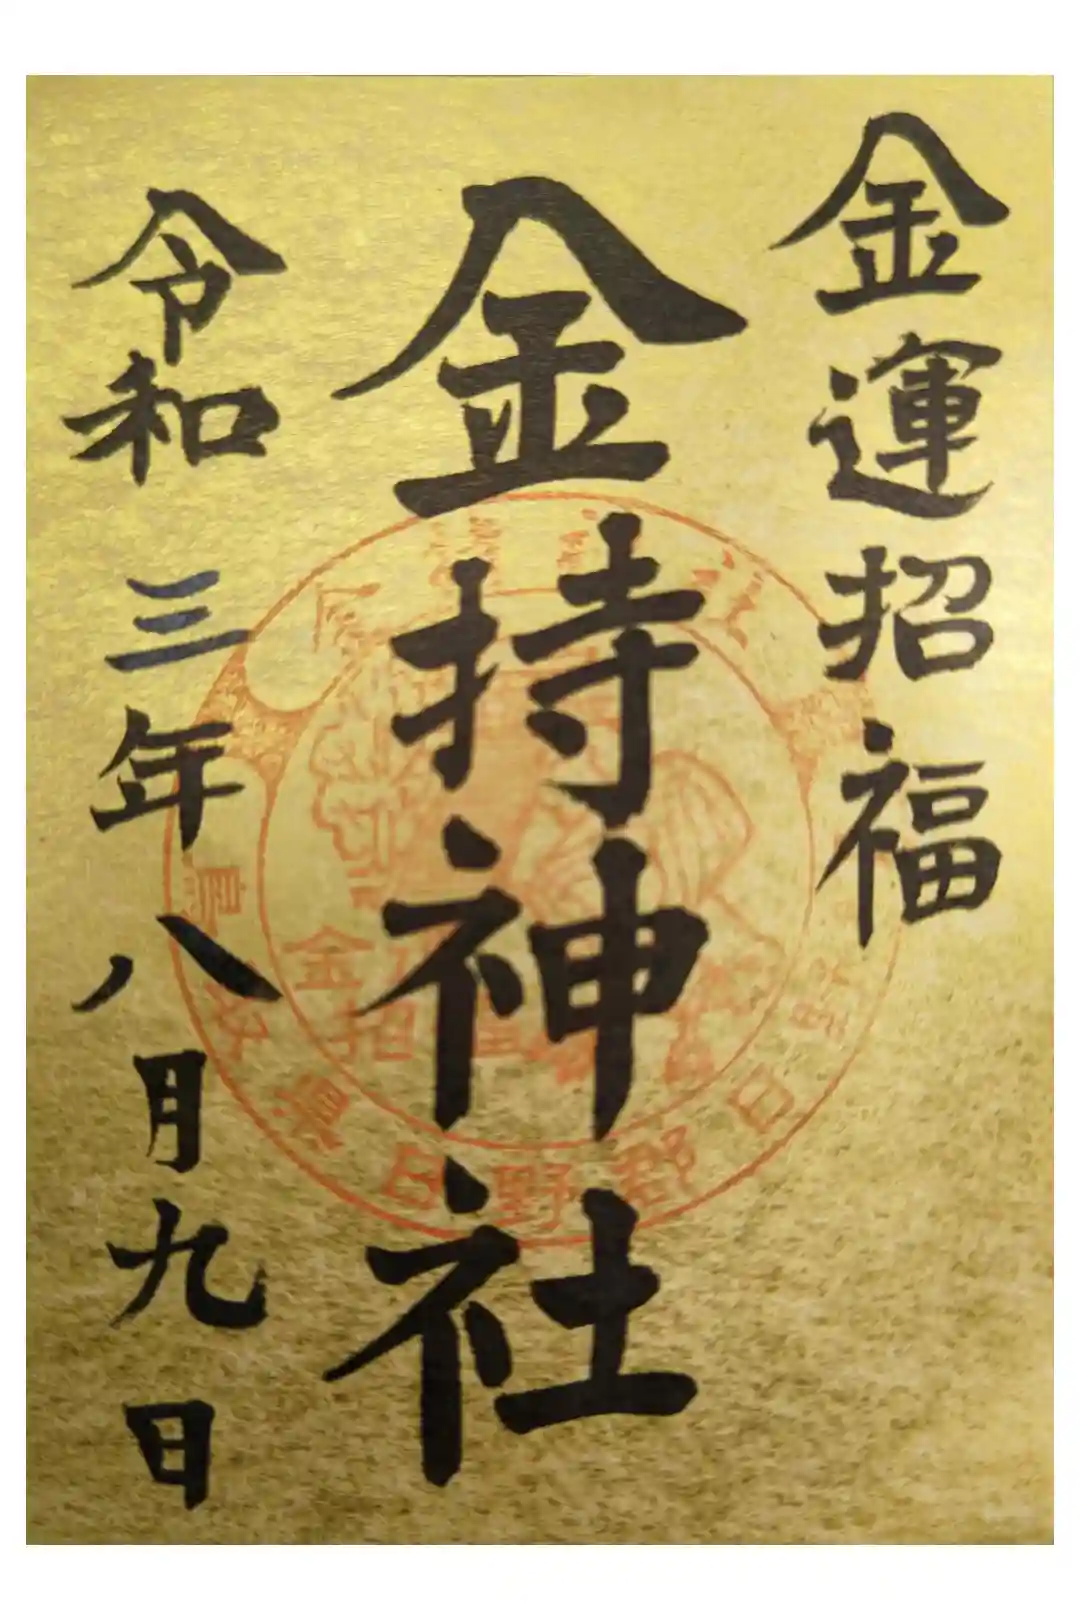 金運招福
金持神社
令和三年八月九日
鳥取県日野郡日野